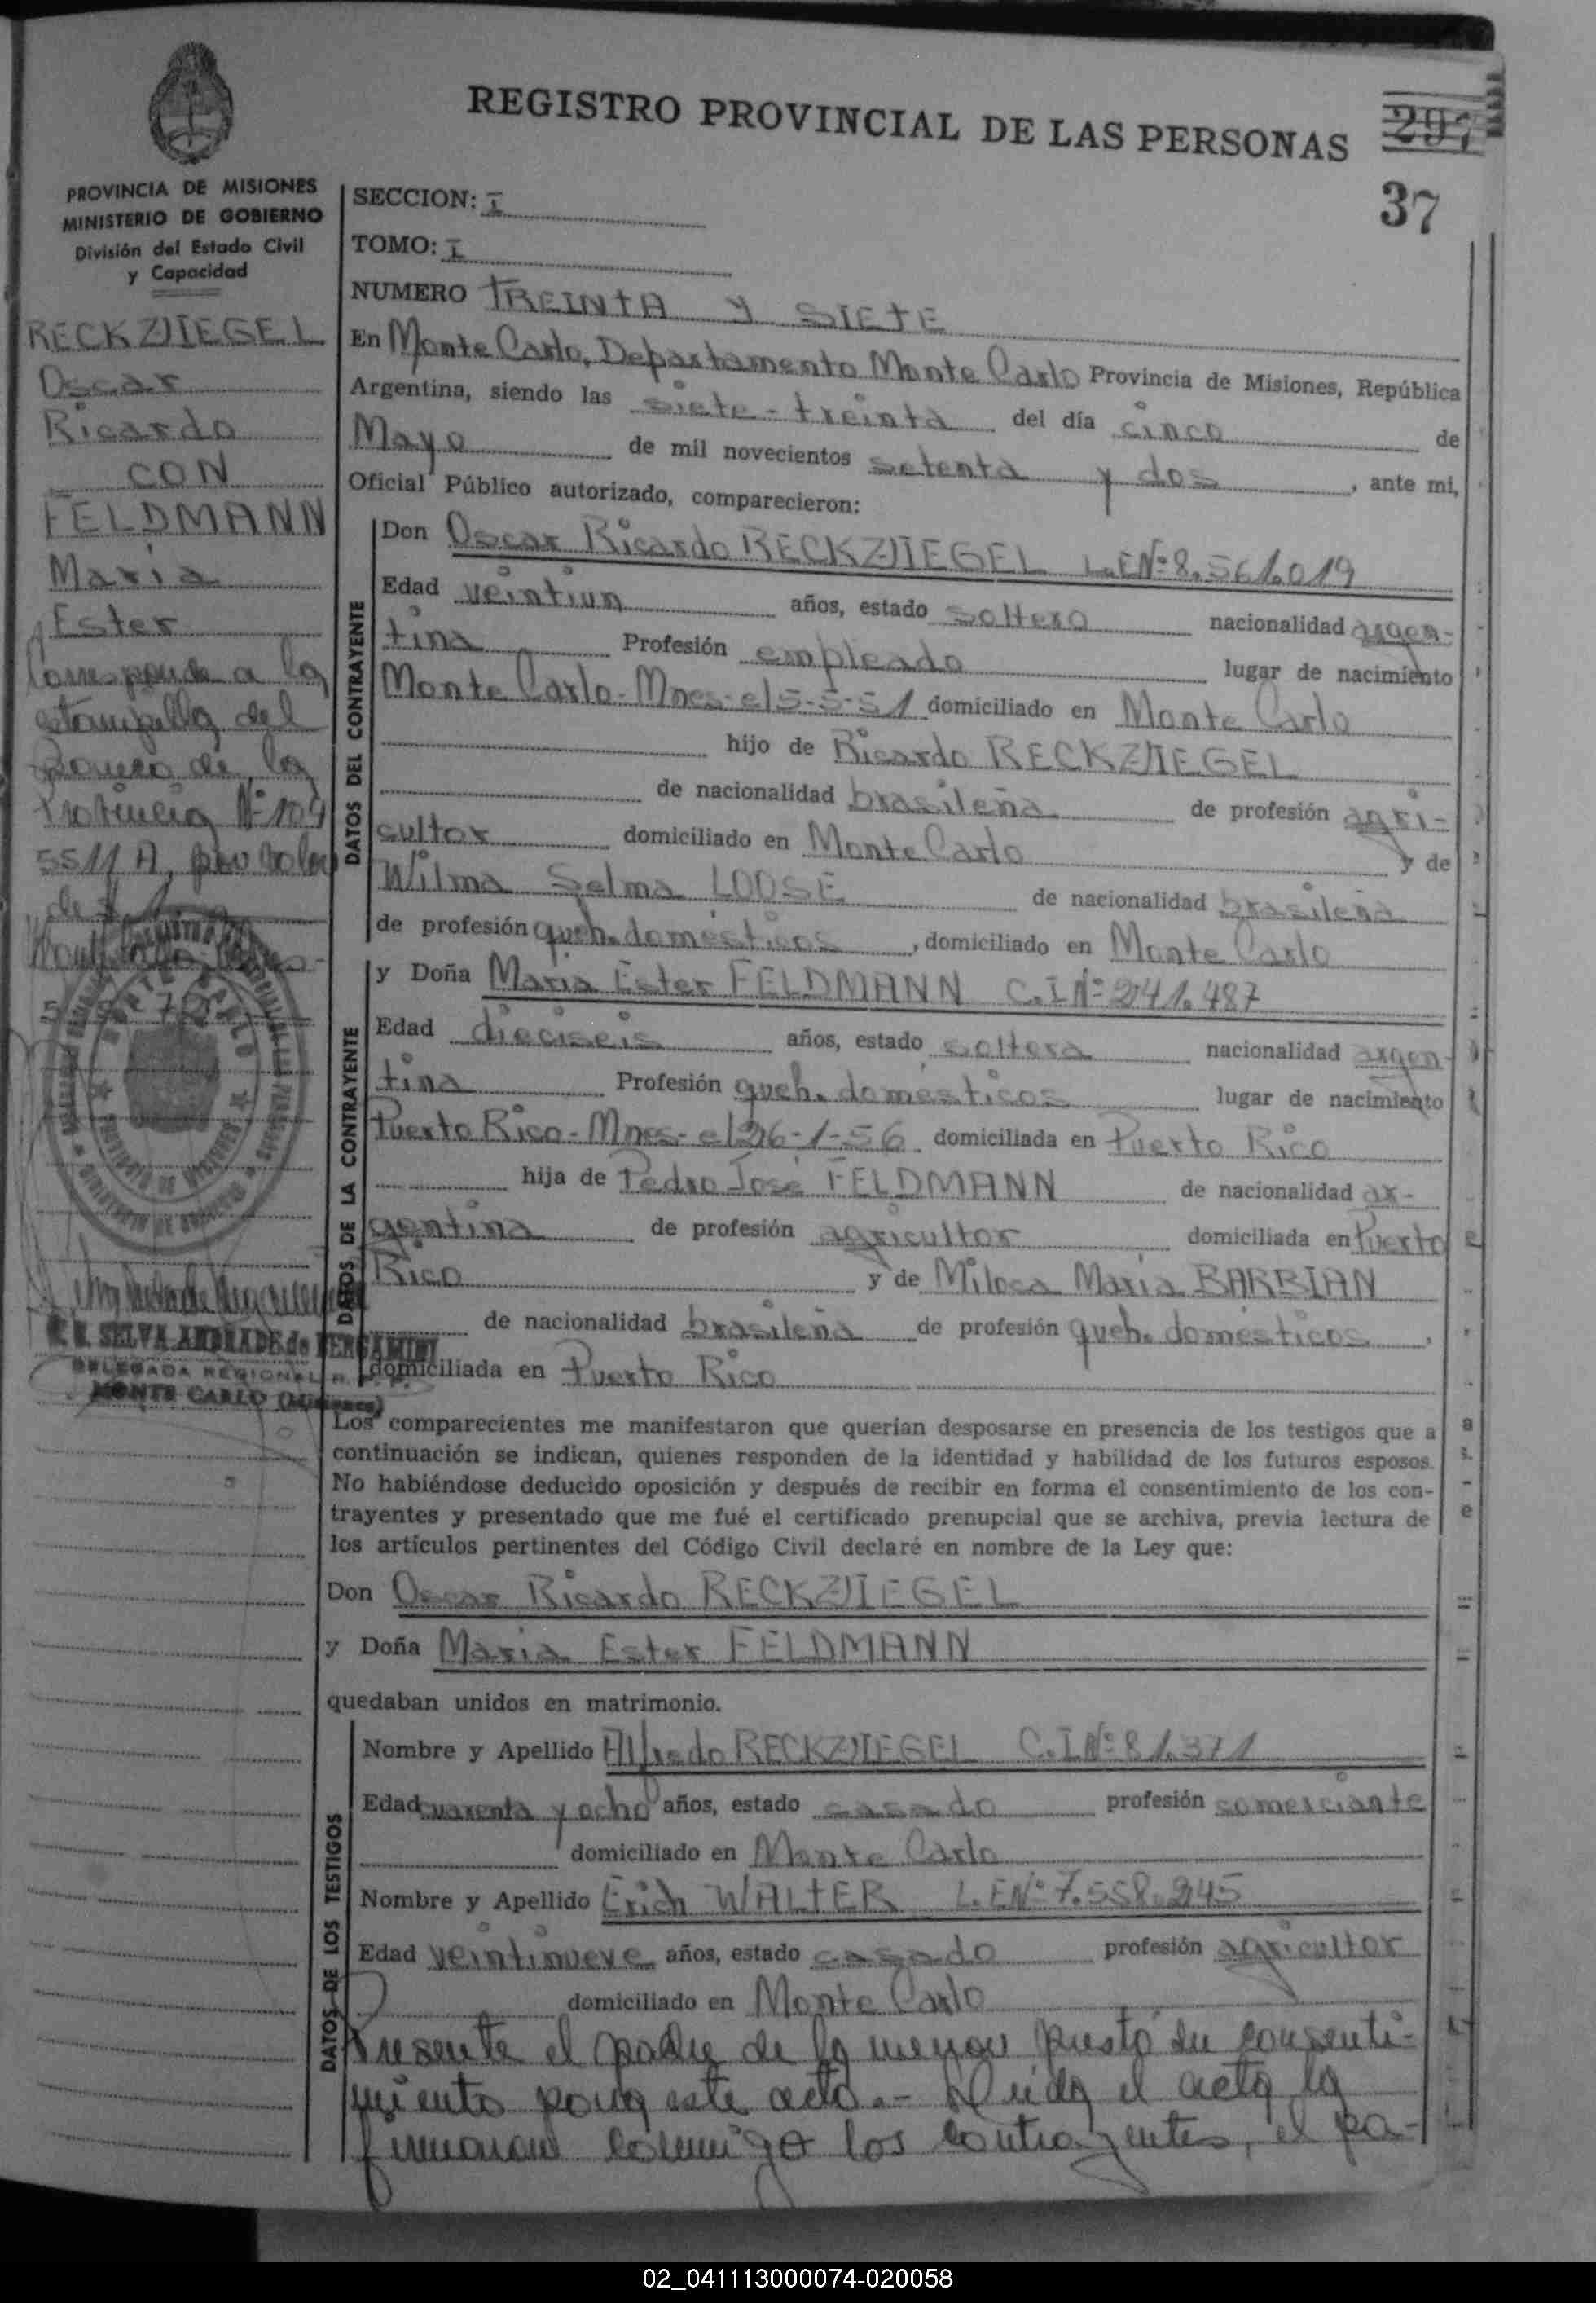 REGISTRO PROVINCIAL DE LAS PERSONAS
297
37
PROVINCIA DE MISIONES
MINISTERIO DE GOBIERNO
División del Estado Civil
y Capacidad
RECKZIEGEL
Oscar
Ricardo
CON
FELDMANN
Maria
Ester
Corresponde a la
estampilla del
Banco de la
Provincia Nº 104
5511 A, por valor
de $ 1
5 5 72
S. SELVA ANDRADE de BERGAMINI
DELEGADA REGIONAL
MONTE CARLO (Misiones)
SECCION: I
TOMO: I
NUMERO TREINTA Y SIETE
En Monte Carlo, Departamento Monte Carlo Provincia de Misiones, República
Argentina, siendo las siete-treinta del día cinco de
Mayo de mil novecientos setenta y dos, ante mi,
Oficial Público autorizado, comparecieron:
DATOS DEL CONTRAYENTE
Don Oscar Ricardo RECKZIEGEL L.E Nº 8.561.019
Edad veintiun años, estado soltero nacionalidad argen-
tina Profesión empleado lugar de nacimiento
Monte Carlo-Mnes-el 5-5-51 domiciliado en Monte Carlo
hijo de Ricardo RECKZIEGEL
de nacionalidad brasileña de profesión agri-
cultor domiciliado en Monte Carlo y de
Wilma Selma LOOSE de nacionalidad brasileña
de profesión queh. domésticos, domiciliado en Monte Carlo
DATOS DE LA CONTRAYENTE
y Doña Maria Ester FELDMANN C.I Nº 241.487
Edad dieciseis años, estado soltera nacionalidad argen-
tina Profesión queh. domésticos lugar de nacimiento
Puerto Rico-Mnes-el 26-1-56 domiciliada en Puerto Rico
hija de Pedro José FELDMANN de nacionalidad ar-
gentina de profesión agricultor domiciliada en Puerto
Rico y de Miloca Maria BARBIAN
de nacionalidad brasileña de profesión queh. domésticos,
domiciliada en Puerto Rico
Los comparecientes me manifestaron que querían desposarse en presencia de los testigos que a
continuación se indican, quienes responden de la identidad y habilidad de los futuros esposos.
No habiéndose deducido oposición y después de recibir en forma el consentimiento de los con-
trayentes y presentado que me fué el certificado prenupcial que se archiva, previa lectura de
los artículos pertinentes del Código Civil declaré en nombre de la Ley que:
Don Oscar Ricardo RECKZIEGEL
y Doña Maria Ester FELDMANN
quedaban unidos en matrimonio.
DATOS DE LOS TESTIGOS
Nombre y Apellido Alfredo RECKZIEGEL C.I Nº 81.371
Edad cuarenta y ocho años, estado casado profesión comerciante
domiciliado en Monte Carlo
Nombre y Apellido Erich WALTER L.E Nº 7.558.245
Edad veintinueve años, estado casado profesión agricultor
domiciliado en Monte Carlo
Presente el padre de la menor prestó su consenti-
miento para este acto.- Leida el acta la
firmaron conmigo los contrayentes, el pa-
02_041113000074-020058